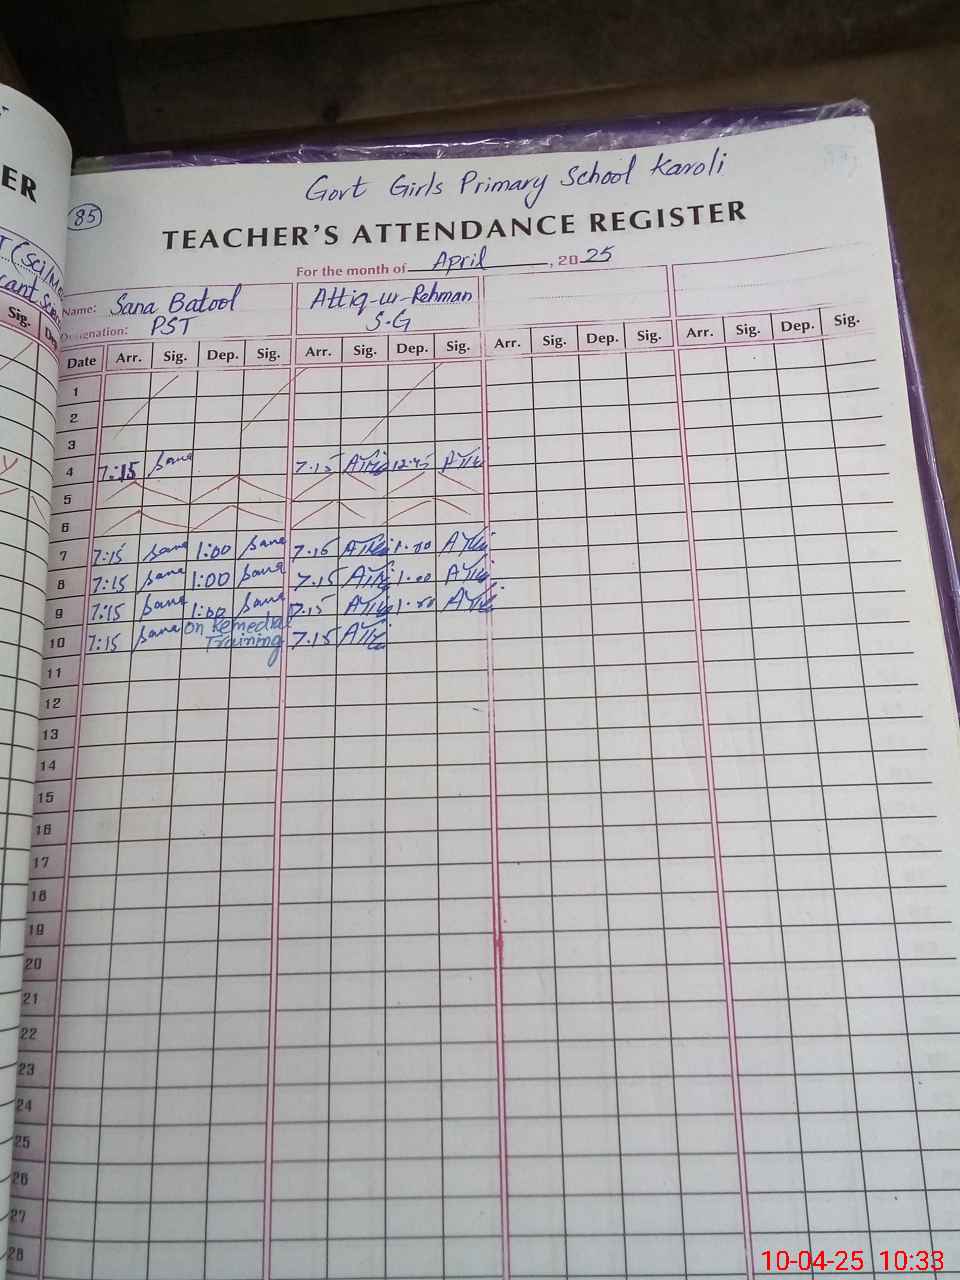 ER
Govt Girls Primary School Karoli
85
TEACHER'S ATTENDANCE REGISTER
For the month of April, 2025
Name: Sana Batool Attiq-ur-Rehman
Designation: PST S-G
Sig.
Date Arr. Sig. Dep. Sig. Arr. Sig. Dep. Sig. Arr. Sig. Dep. Sig. Arr. Sig. Dep. Sig.
1
2
3
4 7:15 Sana 7.15 Attiq 12:45 Attiq
5
6
7 7:15 Sana 1:00 Sana 7.15 Attiq 1.00 Attiq
8 7:15 Sana 1:00 Sana 7.15 Attiq 1.00 Attiq
9 7:15 Sana 1:00 Sana 7.15 Attiq 1.00 Attiq
10 7:15 Sana On Remedial Training 7.15 Attiq
11
12
13
14
15
16
17
18
19
20
21
22
23
24
25
26
27
28
10-04-25 10:33